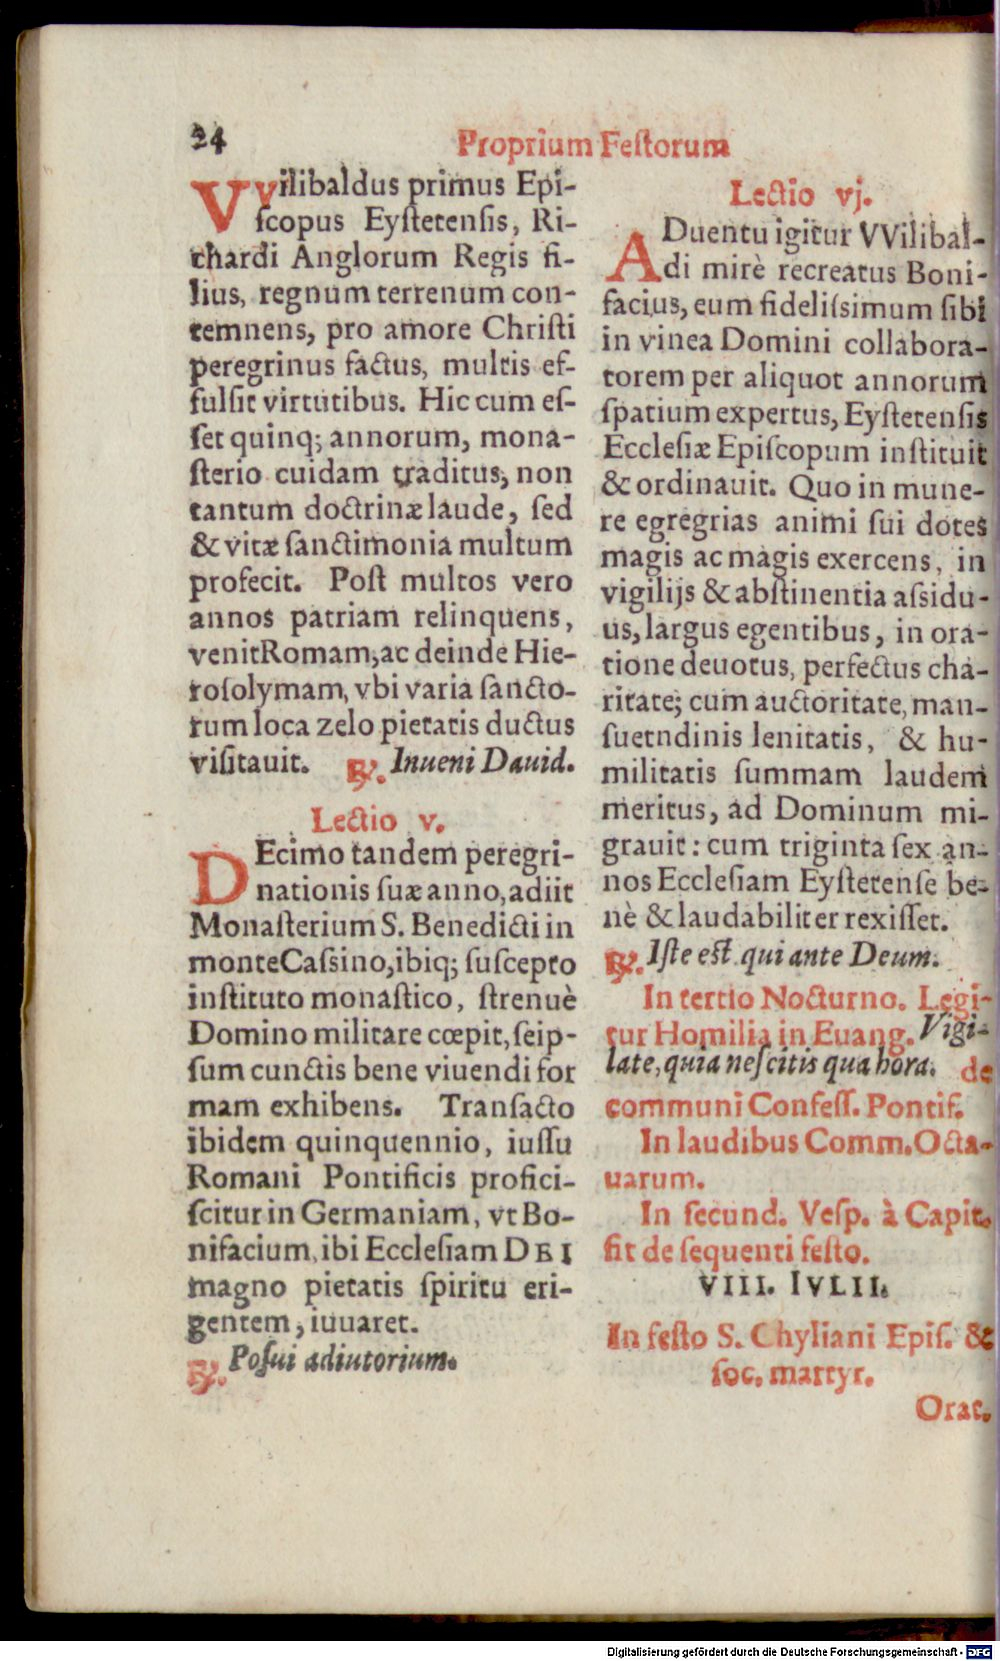 24
Proprium Festorum
VVilibaldus primus Epi-
ſcopus Eyſtetenſis, Ri-
chardi Anglorum Regis fi-
lius, regnum terrenum con-
temnens, pro amore Chriſti
peregrinus factus, multis ef-
fulſit virtutibus. Hic cum eſ-
ſet quinq; annorum, mona-
ſterio cuidam traditus, non
tantum doctrinæ laude, ſed
& vitæ ſanctimonia multum
profecit. Poſt multos vero
annos patriam relinquens,
venit Romam, ac deinde Hie-
roſolymam, vbi varia ſancto-
rum loca zelo pietatis ductus
viſitauit. ℟. Inueni Dauid.
Lectio v.
DEcimo tandem peregri-
nationis ſuæ anno, adiit
Monaſterium S. Benedicti in
monte Caſsino, ibiq; ſuſcepto
inſtituto monaſtico, ſtrenuè
Domino militare cœpit, ſeip-
ſum cunctis bene viuendi for
mam exhibens. Tranſacto
ibidem quinquennio, iuſſu
Romani Pontificis profici-
ſcitur in Germaniam, vt Bo-
nifacium, ibi Eccleſiam DEI
magno pietatis ſpiritu eri-
gentem, iuuaret.
℟. Poſui adiutorium.
Lectio vj.
ADuentu igitur VVilibal-
di mirè recreatus Boni-
facius, eum fideliſsimum ſibi
in vinea Domini collabora-
torem per aliquot annorum
ſpatium expertus, Eyſtetenſis
Eccleſiæ Epiſcopum inſtituit
& ordinauit. Quo in mune-
re egregrias animi ſui dotes
magis ac magis exercens, in
vigilijs & abſtinentia aſsidu-
us, largus egentibus, in ora-
tione deuotus, perfectus cha-
ritate; cum auctoritate, man-
ſuetndinis lenitatis, & hu-
militatis ſummam laudem
meritus, ad Dominum mi-
grauit: cum triginta ſex an-
nos Eccleſiam Eyſtetenſe be-
nè & laudabiliter rexiſſet.
℟. Iſte eſt qui ante Deum.
In tertio Nocturno. Legi-
tur Homilia in Euang. Vigi-
late, quia neſcitis qua hora. de
communi Confeſſ. Pontif.
In laudibus Comm. Octa-
uarum.
In ſecund. Veſp. à Capit.
fit de ſequenti feſto.
VIII. IVLII.
In feſto S. Chyliani Epiſ. &
ſoc. martyr.
Orat.
Digitalisierung gefördert durch die Deutsche Forschungsgemeinschaft - DFG